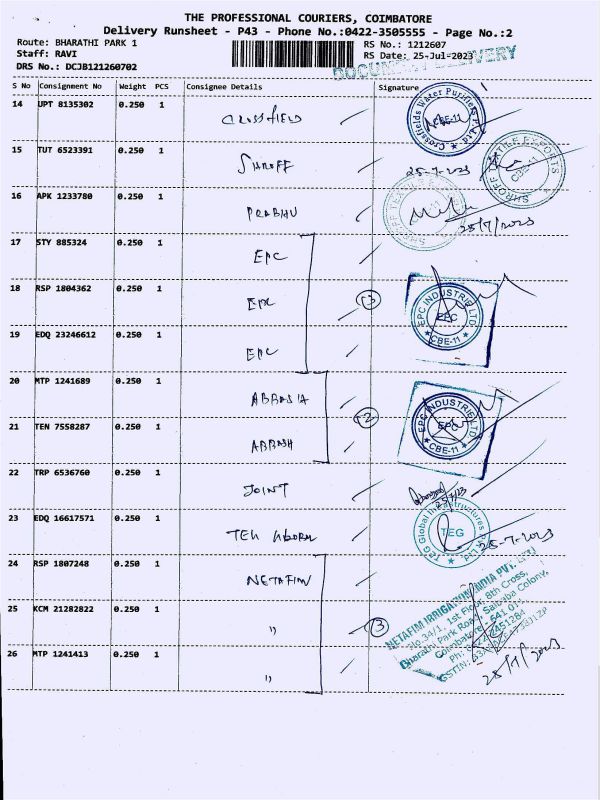 THE PROFESSIONAL COURIERS, COIMBATORE
Delivery Runsheet - P43 - Phone No.:0422-3505555 - Page No.:2
Route: BHARATHI PARK 1
RS No.: 1212607
Staff: RAVI
RS Date: 25-Jul-2023
DRS No.: DCJB121260702
DOCUMENT DELIVERY
S No Consignment No Weight PCS Consignee Details Signature
14 UPT 8135302 0.250 1 CROSSFIELD
Crossfields Water Purifiers P. Ltd. CBE-11
15 TUT 6523391 0.250 1 SHROFF 25-7-2023
SHROFF TEXTILE EXPORTS CBE-11
16 APK 1233780 0.250 1 PRABHU 25/7/2023
SHROFF TEXTILE
17 STY 885324 0.250 1 EPC
18 RSP 1804362 0.250 1 EPC 3
EPC INDUSTRIE LTD EPC CBE-11
19 EDQ 23246612 0.250 1 EPC
20 MTP 1241689 0.250 1
21 TEN 7558287 0.250 1 2
EPC INDUSTRIE LTD EPC CBE-11
22 TRP 6536760 0.250 1 JOINT
23 EDQ 16617571 0.250 1 25-7-2023
TEG Global Infrastructures TEG
24 RSP 1807248 0.250 1 NETAFIM
25 KCM 21282822 0.250 1 " 3
26 MTP 1241413 0.250 1 "
NETAFIM IRRIGATION INDIA PVT. LTD
No.34/1, 1st Floor, 8th Cross,
Bharathi Park Road, Saibaba Colony,
Coimbatore - 641 011